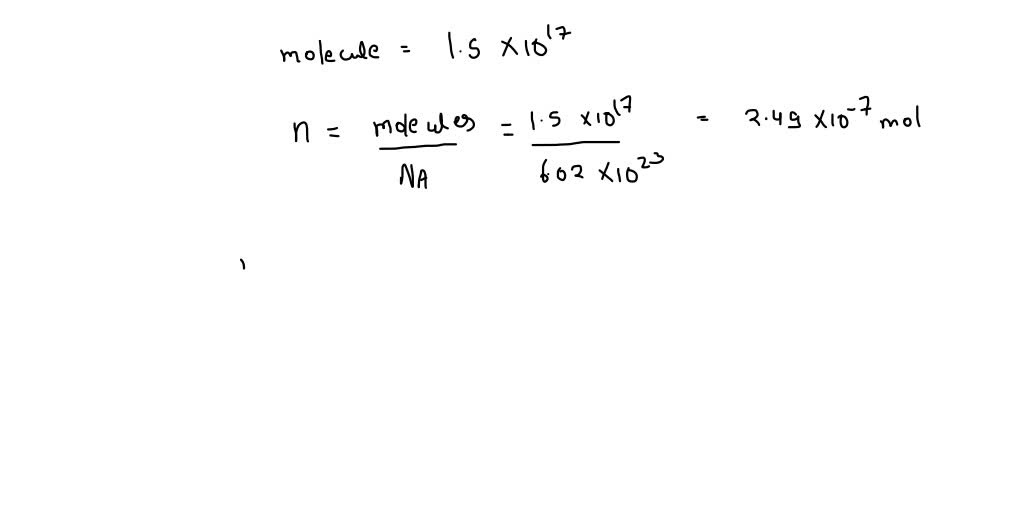 molecule = 1.5 × 10^17
n = molecules / NA = 1.5 × 10^17 / 6.02 × 10^23 = 2.49 × 10^-7 mol